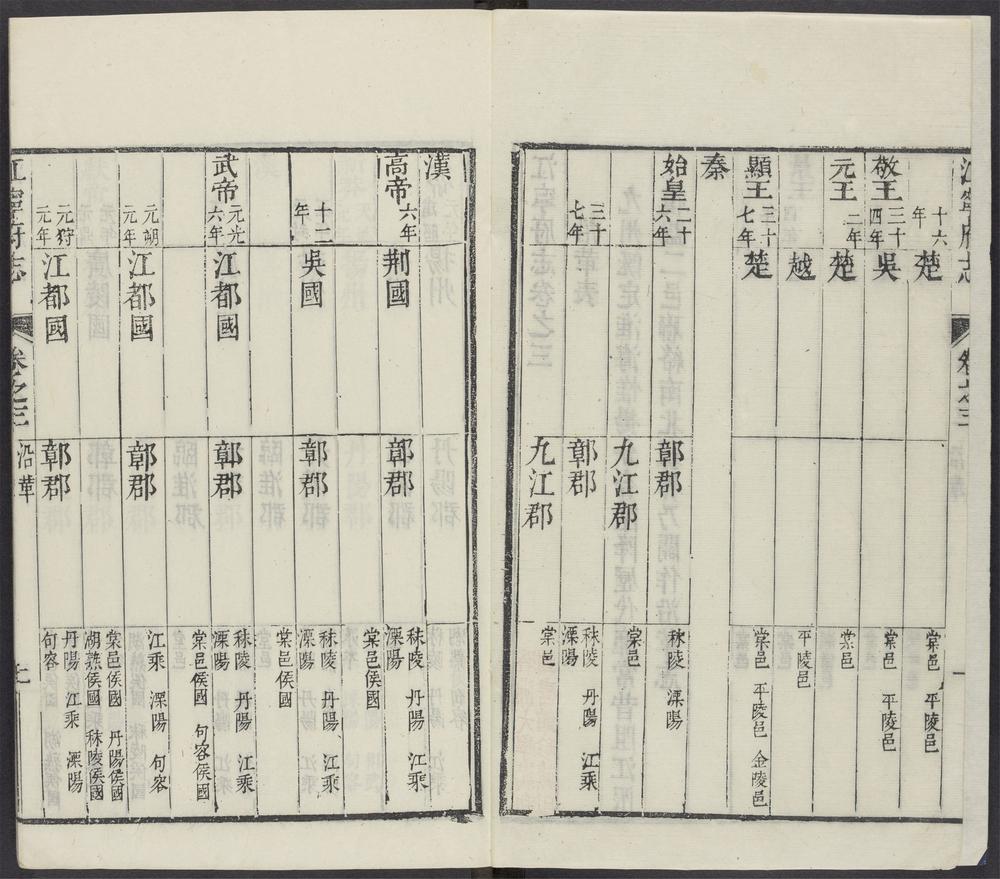 江寧府志 卷之三 一
十六年 楚 棠邑 平陵邑
敬王 三十四年 吳 棠邑 平陵邑
元王 二年 楚 棠邑
越 平陵邑
顯王 三十七年 楚 棠邑 平陵邑 金陵邑
秦
始皇 二十六年 鄣郡 秣陵 溧陽
九江郡 棠邑
三十七年 鄣郡 秣陵 丹陽 江乘 溧陽
九江郡 棠邑
漢
高帝 六年 荆國 鄣郡 秣陵 丹陽 江乘 溧陽
棠邑侯國
十二年 吳國 鄣郡 秣陵 丹陽 江乘 溧陽
棠邑侯國
武帝 元光六年 江都國 鄣郡 秣陵 丹陽 江乘 溧陽
棠邑侯國 句容侯國
元朔元年 江都國 鄣郡 江乘 溧陽 句容
棠邑侯國 丹陽侯國 湖熟侯國 秣陵侯國
元狩元年 江都國 鄣郡 丹陽 江乘 溧陽 句容
江寧府志 卷之三 沿革